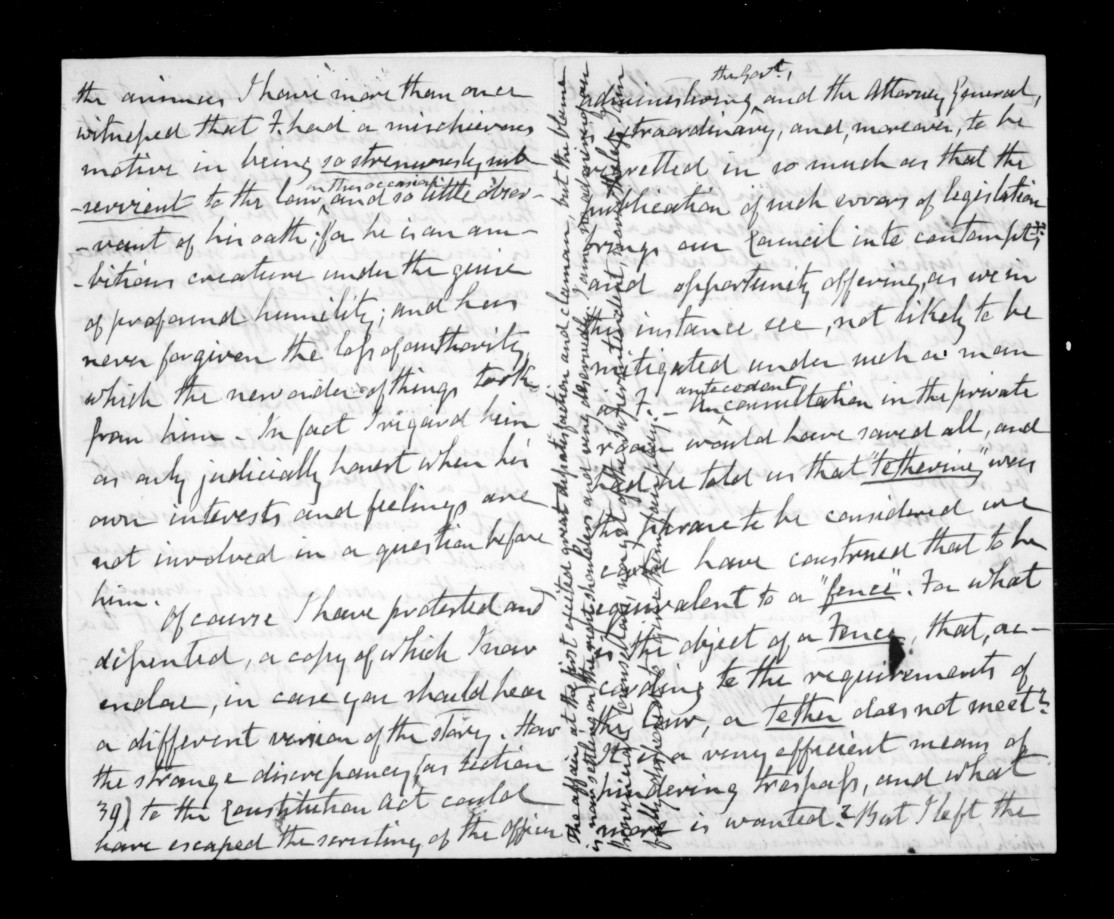 the animus I have more than once
witnessed that F. had a mischievous
motive in being so strenuously sub
-servient to the law on this occasion and so little obser-
-vant of his oath; for he is an am-
-bitious creature under the guise
of profound humility; and has
never forgiven the loss of authority
which the new order of things took
from him. In fact I regard him
as only judicially honest when his
own interests and feelings are
not involved in a question before
him.
Of course I have protested and
dissented, a copy of which I now
enclose, in case you should hear
a different version of the story. How
the strange discrepancy (as section
39) to the Constitution Act could
have escaped the scrutiny of the Officer
The affair at the first excited great dissatisfaction and clamour, but the blame
is now settling on the right shoulders and was, deservedly,
Provincial Council and, now, of the Superintendent, now
fully disposed to give them
the Govt,
administering, and the Attorney General,
extraordinary, and, moreover, to be
regretted in so much as that the
publication of such errors of legislation
brings our Council into contempt;
and opportunity offering, as we in
this instance see, not likely to be
mitigated under such a man
as F. - An antecedent consultation in the private
room would have saved all, and
had he told us that "tethering" was
the phrase to be considered we
could have construed that to be
equivalent to a "fence". For what
is the object of a Fence, that, ac-
cording to the requirements of
the law, a tether does not meet?
It is a very efficient means of
hindering trespass, and what
more is wanted? But I left the